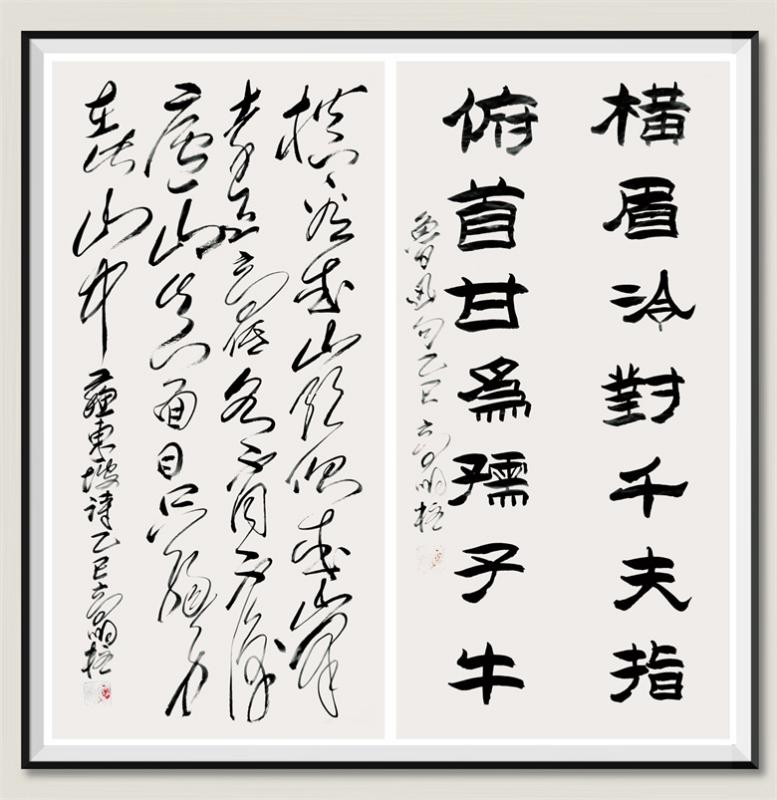 橫眉冷對千夫指
俯首甘爲孺子牛
魯迅句乙巳高明
橫看成嶺側成峯
遠近高低各不同不識
廬山真面目只緣身
在此山中
蘇東坡詩乙巳高明